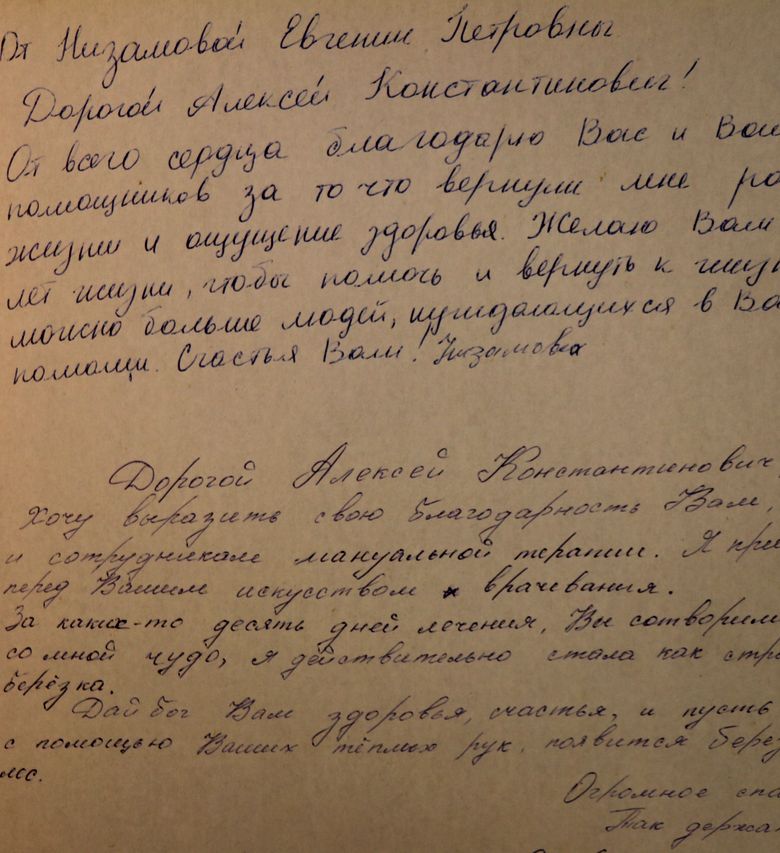 От Низамовой Евгении Петровны
Дорогой Алексей Константинович!
От всего сердца благодарю Вас и Ваш
помощников за то что вернули мне ра
жизни и ощущение здоровья. Желаю Вам
лет жизни, чтобы помочь и вернуть к жизн
можно больше людей, нуждающихся в Ва
помощи. Счастья Вам! Низамова
Дорогой Алексей Константинович
Хочу выразить свою благодарность Вам,
и сотрудникам мануальной терапии. Я пре
перед Вашим искусством врачевания.
За каких-то десять дней лечения, Вы сотворили
со мной чудо, я действительно стала как стро
берёзка.
Дай бог Вам здоровья, счастья, и пусть
с помощью Ваших тёплых рук, появится берез
лес.
Огромное спа
Так держа